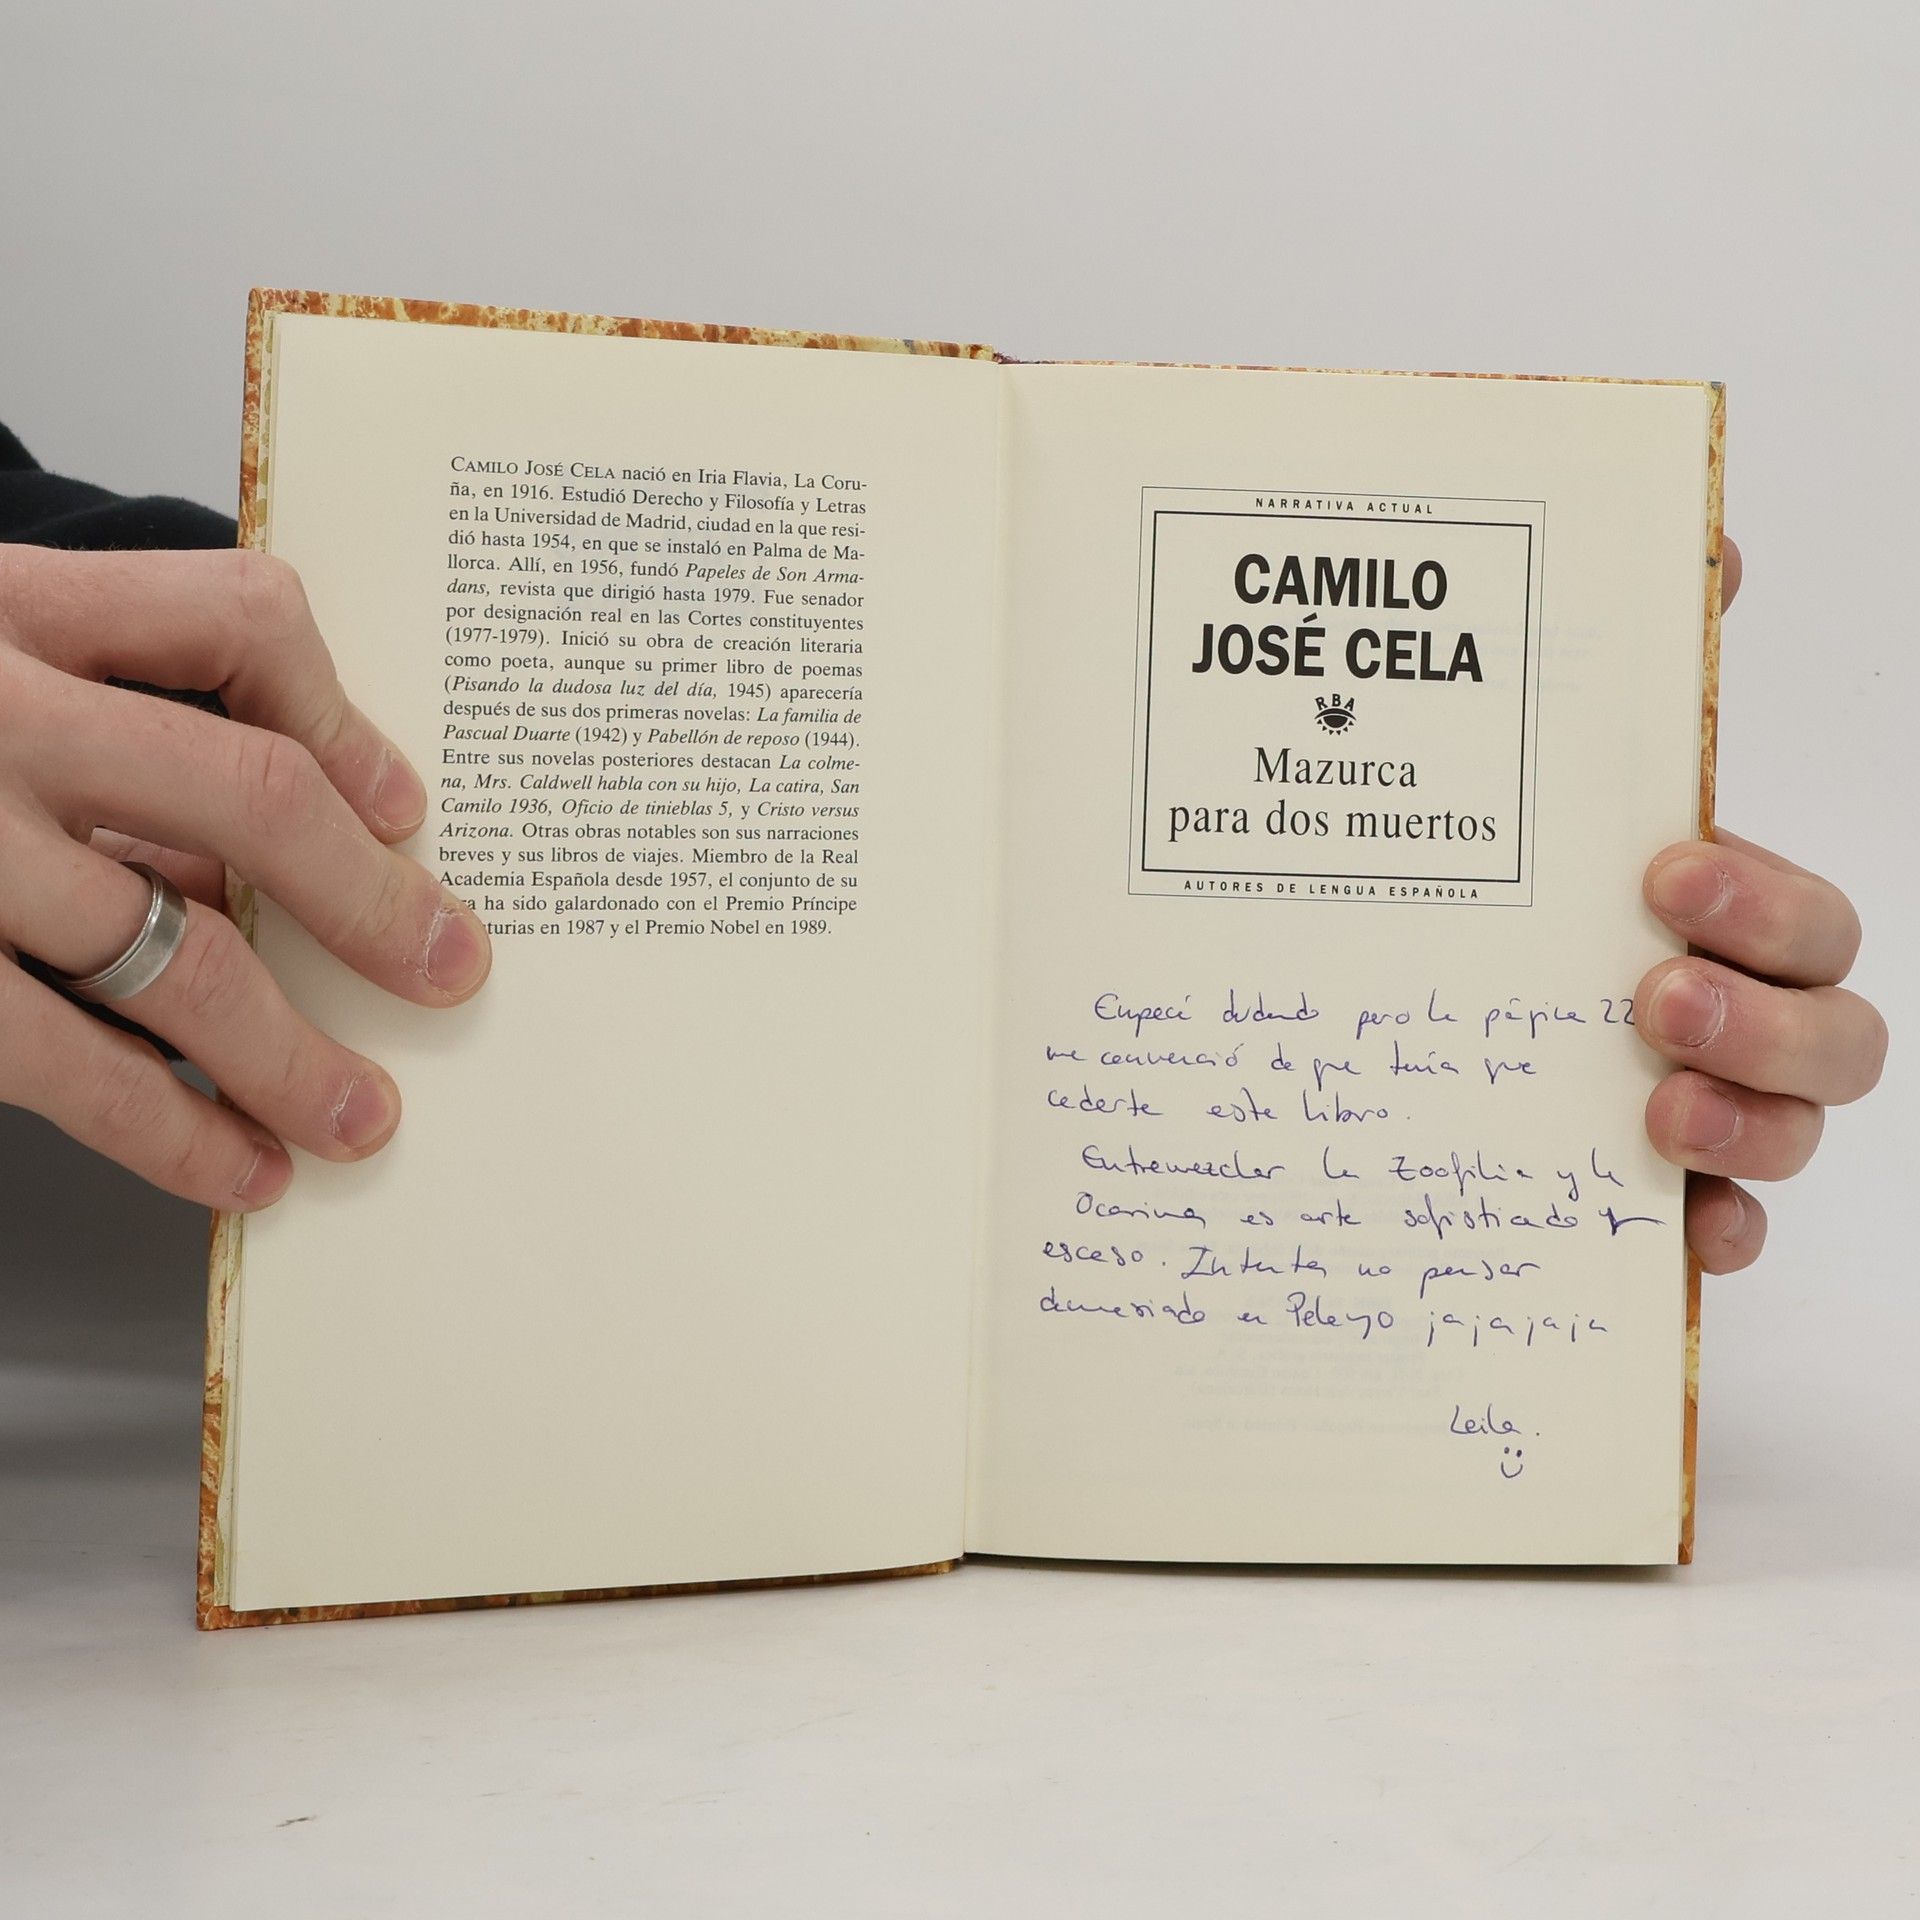 CAMILO JOSÉ CELA nació en Iria Flavia, La Coru-
ña, en 1916. Estudió Derecho y Filosofía y Letras
en la Universidad de Madrid, ciudad en la que resi-
dió hasta 1954, en que se instaló en Palma de Ma-
llorca. Allí, en 1956, fundó Papeles de Son Arma-
dans, revista que dirigió hasta 1979. Fue senador
por designación real en las Cortes constituyentes
(1977-1979). Inició su obra de creación literaria
como poeta, aunque su primer libro de poemas
(Pisando la dudosa luz del día, 1945) aparecería
después de sus dos primeras novelas: La familia de
Pascual Duarte (1942) y Pabellón de reposo (1944).
Entre sus novelas posteriores destacan La colme-
na, Mrs. Caldwell habla con su hijo, La catira, San
Camilo 1936, Oficio de tinieblas 5, y Cristo versus
Arizona. Otras obras notables son sus narraciones
breves y sus libros de viajes. Miembro de la Real
Academia Española desde 1957, el conjunto de su
ha sido galardonado con el Premio Príncipe
turias en 1987 y el Premio Nobel en 1989.
NARRATIVA ACTUAL
CAMILO
JOSÉ CELA
RBA
Mazurca
para dos muertos
AUTORES DE LENGUA ESPAÑOLA
Empecé dudando pero la página 22
me convenció de que tenía que
cederte este libro.
Entremezclar la zoofilia y la
Ocarina es arte sofisticado y
esceso. Intenta no pensar
demasiado en Pelayo jajajaja
Leila.